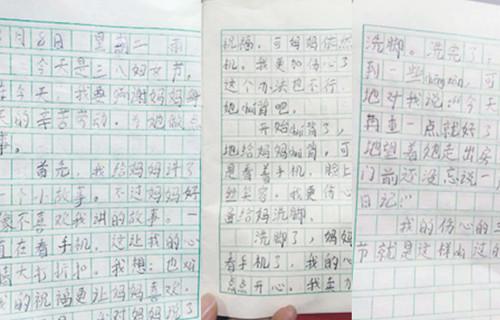 月8日 星期二 雨
今天是三八妇女节。
今天，我要感谢妈妈每
天的辛苦劳动，为她做点
事。
首先，我给妈妈讲了
一个小故事。不过妈妈好
像不喜欢我讲的故事。一
直在看手机，这让我的心
情大打折扣。我想：也
我的祝福更让妈妈喜欢。
我对妈妈说了
祝福，可妈妈依然
机。我更加伤心了
这个办法也不行
她 背吧。
开始 背了，
地给妈妈 背，可
是看着手机，脸上
丝笑容。我更伤心
备给妈妈洗脚。
洗脚了，妈妈
看手机了，我的心
点点开心。我卖力
洗脚。洗完了，
到一些
地对我说：“今天
再重一点就好了
地望着她走出房
门前还没忘说一
日记！”
我的伤心的三
节就是这样的过